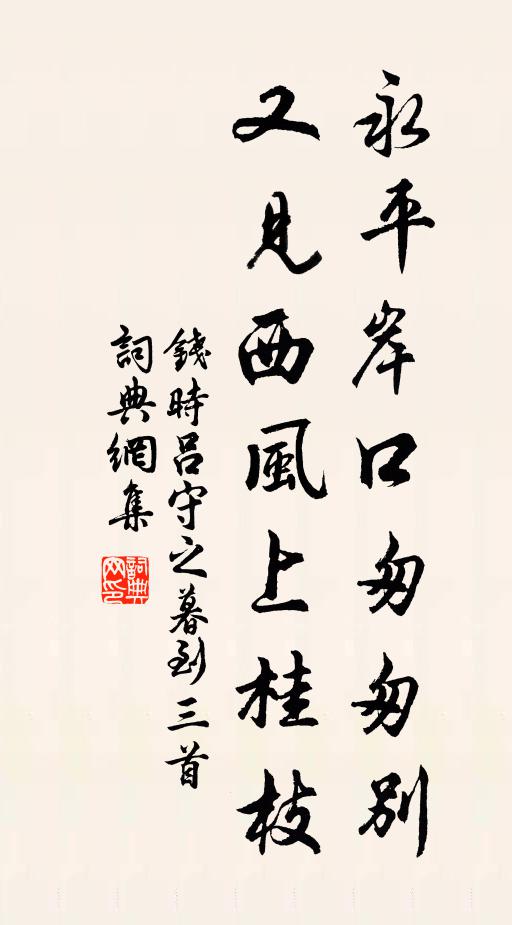 永平岸口匆匆別
又見西風上桂枝
錢時呂守之暮到三首
詞典網集
詞典网印